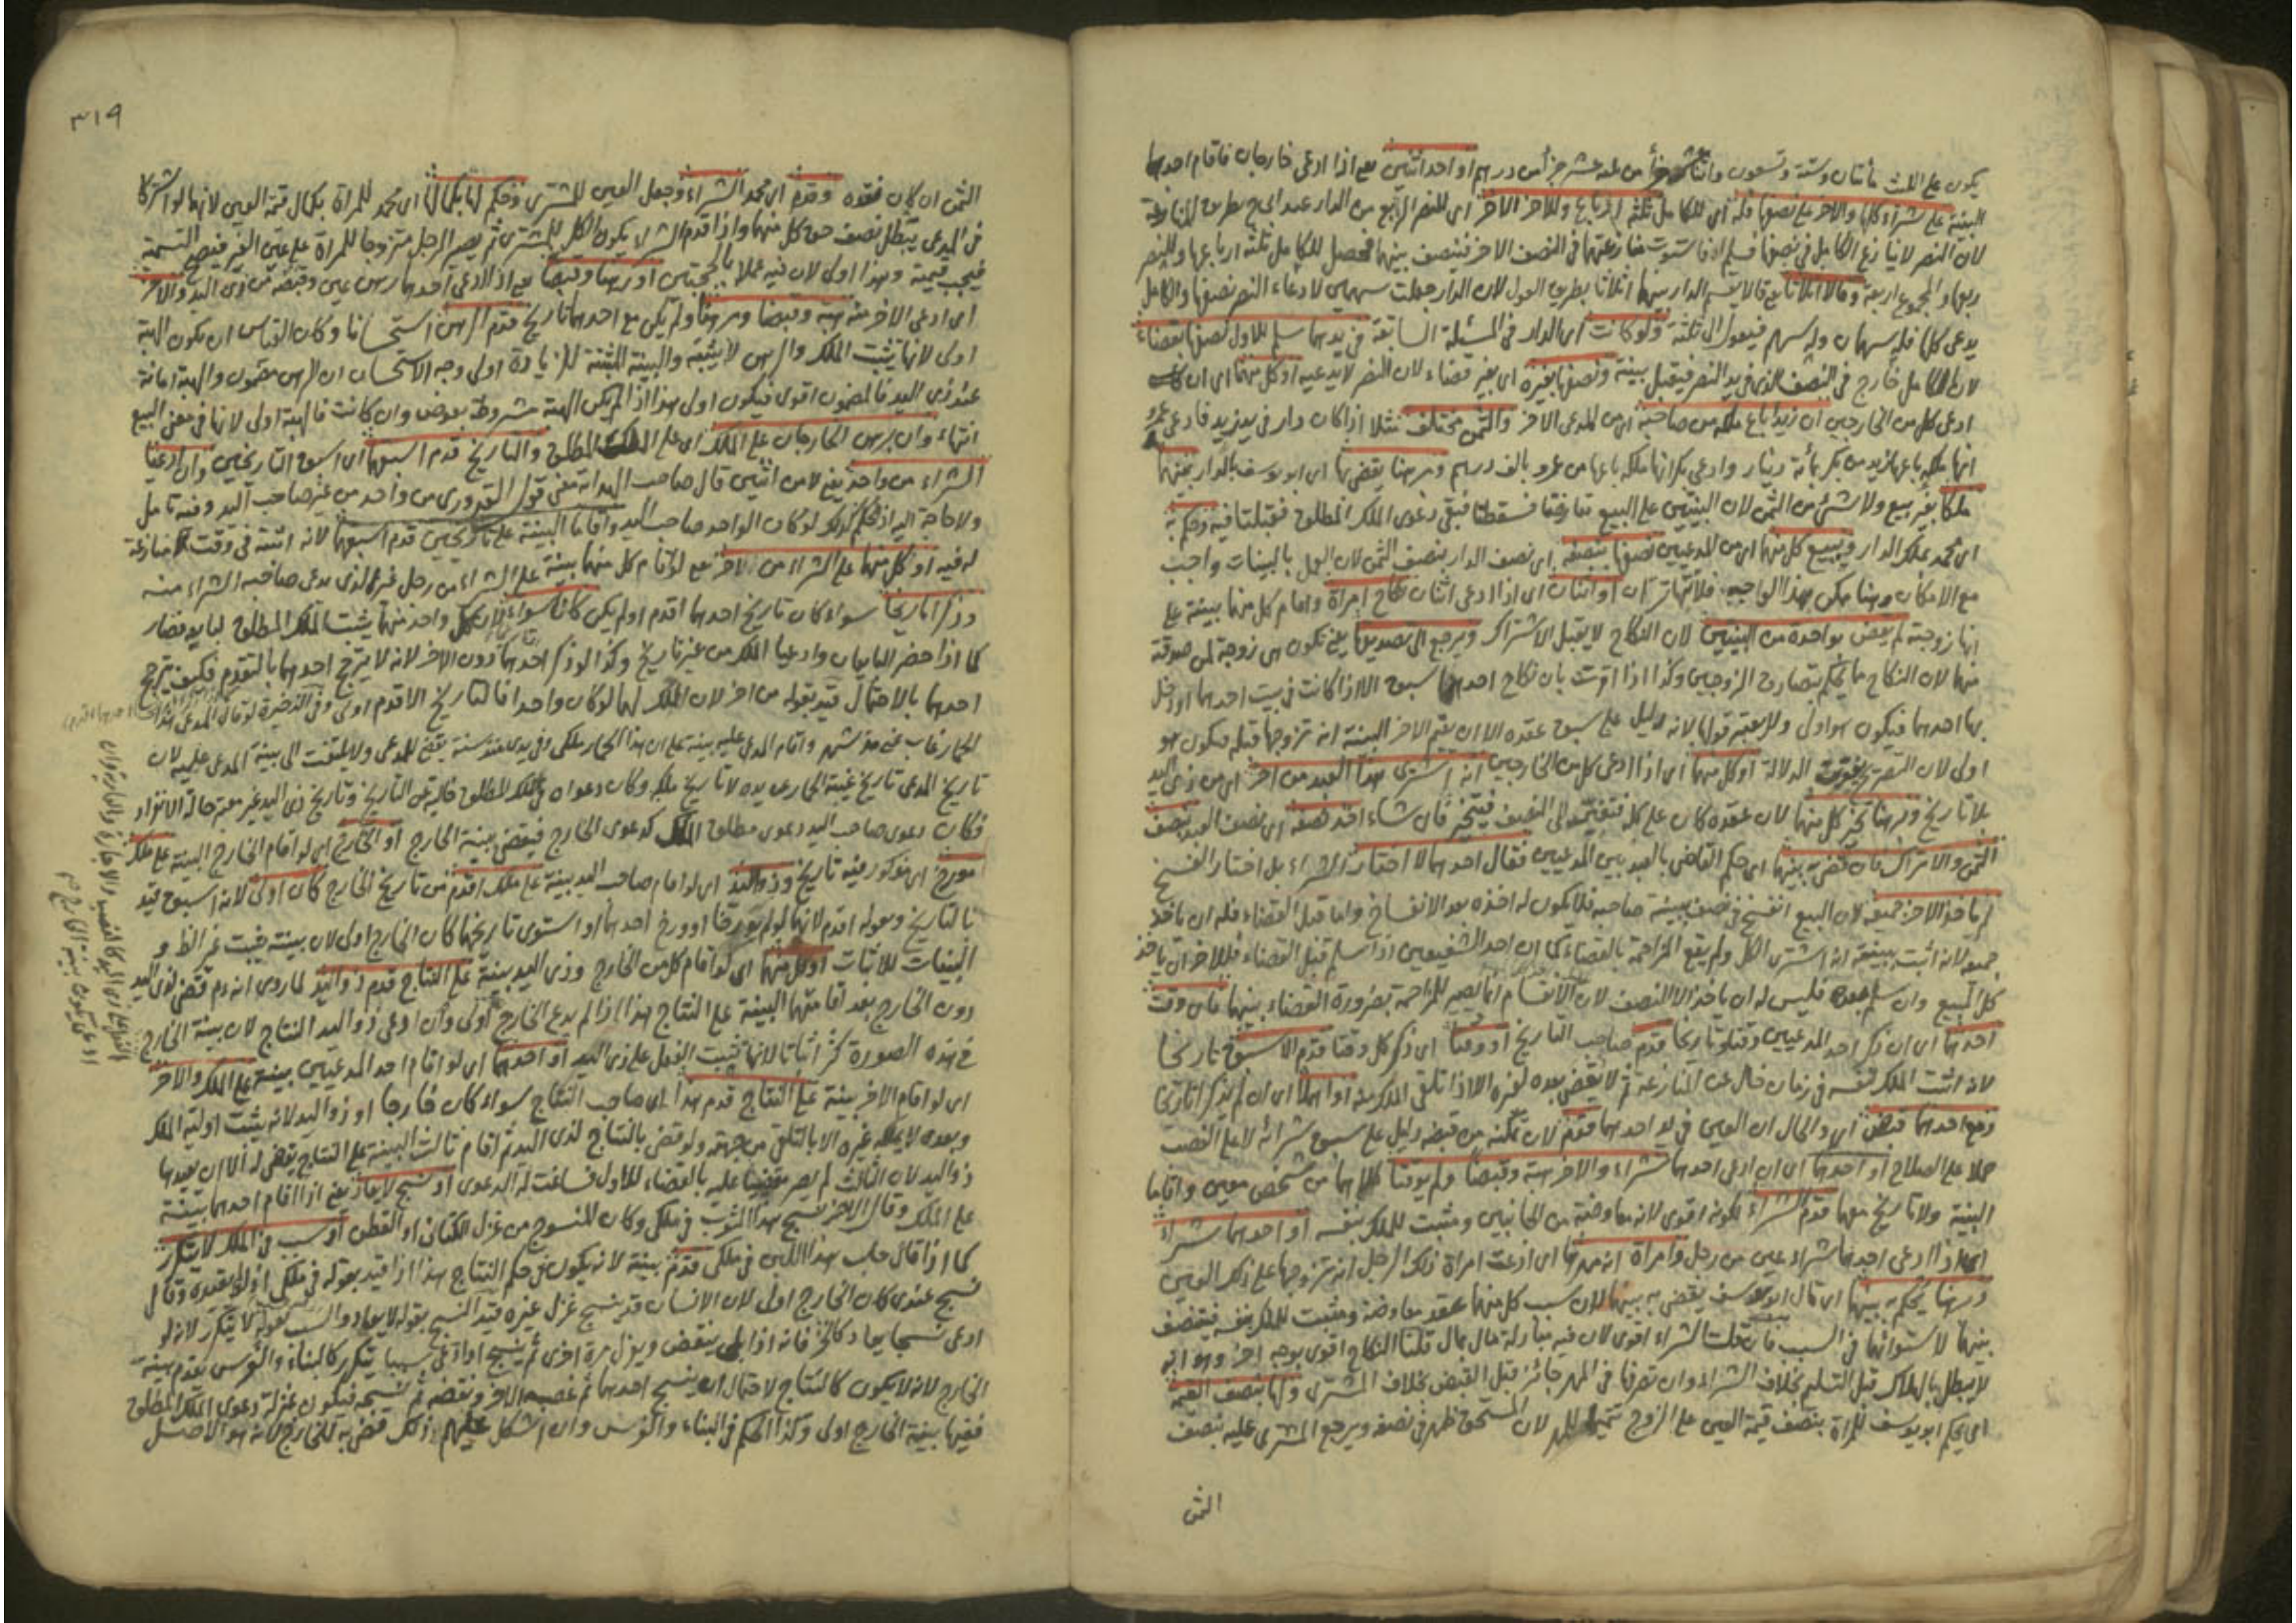 يكون على الثلث مائتان وستة وتسعون واثنا عشر جزأ من ثلثه عشر جزأ من درهم او احد اثنين يعني اذا ادعى خارجان فاقام احدهما
البينة على شراء كلها والاخر على نصفها فله اي للكامل ثلثة ارباع وللاخر الاخر اي للنصف الربع من الدار عند ابي ح بطريق المنازعة
لان النصف لا ينازع الكامل في نصفها فسلم اذا استوت منازعتهما في النصف الاخر فينصف بينهما فحصل للكامل ثلثة ارباعها وللنصف
ربعها والمجموع اربعة وقالا اثلاثا يعني قالا يقسم الدار بينهما اثلاثا بطريق العول لان الدار جعلت سهمين لادعاء النصف نصفها والكامل
يدعي كلها فله سهمان وله سهم فيعول الى ثلثة ولو كانت اي الدار في المسئلة السابقة في يدهما سلم للاول نصفها بقضاء
لان الكامل خارج في النصف الذي في يد النصف فيقبل بينته ونصفها بغيره اي بغير قضاء لان النصف لا يدعيه او كل منهما اي ان
ادعى كل من الخارجين ان زيدا باع ملكه من صاحبه اي من المدعي الاخر والثمن مختلف مثلا اذا كان دار في يد زيد فادعى عمرو
انها ملكه باعها زيد من بكر بمائة دينار وادعى بكر انها ملكه باعها من عمرو بالف درهم وبرهنا يقضي بها اي ابو يوسف بالدار بينهما
ملكا بغير بيع ولا شئ من الثمن لان البينتين على البيع تعارضتا فسقطتا فبقي دعوى الملك المطلق فقبلتا فيه وحكم به
اي محمد بملك الدار ويبيع كل منهما اي من المدعيين نصفها بنصفه اي نصف الدار بنصف الثمن لان العمل بالبينات واجب
مع الامكان وهنا ممكن بهذا الوجه فلا تهاتر او اثنان اي اذا ادعى اثنان نكاح امراة واقام كل منهما بينة على
انها زوجته لم يقض بواحدة من البينتين لان النكاح لا يقبل الاشتراك ويرجع الى تصديقها يعني تكون هي زوجة لمن صدقته
منهما لان النكاح مما يحكم بتصادق الزوجين وكذا اذا اقرت بان نكاح احدهما اسبق الا اذا كانت في بيت احدهما او دخل
بها احدهما فيكون هو اولى ولا يعتبر قولها لانه دليل على سبق عقده الا ان يقيم الاخر البينة انه تزوجها قبله فيكون هو
اولى لان الصريح يفوق الدلالة او كل منهما اي اذا ادعى كل من الخارجين انه اشترى هذا العبد من اخر اي من ذي اليد
بلا تاريخ وبرهنا تخير كل منهما لان عقده كان على كله فتغير الى النصف فيتخير فان شاء اخذ نصفه اي نصف العبد بنصف
الثمن والا ترك فان قضى به بينهما اي حكم القاضي بالعبد بين المدعيين فقال احدهما لا اختار الشراء بل اختار الفسخ
لم ياخذ الاخر جميعه لان البيع انفسخ في نصف ببينة صاحبه فلا يكون له اخذه بعد الانفساخ واما قبل القضاء فله ان ياخذ
جميعه لانه اثبت ببينته انه اشترى الكل ولم يقع المزاحمة بالقضاء كما ان احد الشفيعين اذا سلم قبل القضاء فللاخر ان ياخذ
كل المبيع وان سلم بعده فليس له ان ياخذ الا النصف لان الانقسام انما يصير للمزاحمة بضرورة القضاء بينهما فان وقت
احدهما اي ان ذكر احد المدعيين وقتا وتاريخا قدم صاحب التاريخ او وقتا اي ذكر كل وقتا قدم الاسبق تاريخا
لانه اثبت الملك لنفسه في زمان خال عن المنازعة ثم لا يقضي بعده لغيره الا اذا تلقى الملك منه او اهملا اي ان لم يذكرا تاريخا
ومع احدهما قبض اي والحال ان العين في يد احدهما قدم لان تمكنه من قبضه دليل على سبق شرائه لا على الغصب
حملا على الصلاح او احدهما اي ان ادعى احدهما شراء والاخر هبة وقبضا ولم يوقتا كلاهما من شخص معين واقاما
البينة ولا تاريخ معهما قدم الشراء لكونه اقوى لانه معاوضة من الجانبين ومثبت للملك بنفسه او احدهما شراء
اي اذا ادعى احدهما شراء عين من رجل وامراة انه مهرها اي ادعت امراة ذلك الرجل انه تزوجها على ذلك العين
وبرهنا يحكم به بينهما اي قال ابو يوسف يقضي به بينهما لان سبب كل منهما عقد معاوضة ومثبت للملك بنفسه فينصف
بينهما لاستوائهما في السبب فان قلت الشراء اقوى لان فيه مبادلة مال بمال قلنا النكاح اقوى بوجه اخر وهو انه
لا يبطل بالهلاك قبل التسليم بخلاف الشراء وان تصرفا في المهر جائز قبل القبض بخلاف المشترى ولها بنصف القيمة
اي يحكم ابو يوسف للمراة بنصف قيمة العين على الزوج تتميما للمهر لان المستحق ظهر في نصفه ويرجع المشترى عليه بنصف
الثمن
٣١٩
الثمن ان كان نقده وقدم اي محمد الشراء وجعل العين للمشترى وحكم لها بكمالها اي محمد للمراة بكمال قيمة العين لانهما لو اشتركا
في المدعى يبطل نصف حق كل منهما واذا قدم الشراء يكون الكل للمشترى ثم يصير الرجل متزوجا للمراة على عين الغير فيصح التسمية
فيجب قيمته وهذا اولى لان فيه عملا بالحجتين او رهنا وقبضا يعني اذا ادعى احدهما رهن عين وقبضه من ذي اليد والاخر
اي ادعى الاخر منه هبة وقبضا وبرهنا ولم يكن مع احدهما تاريخ قدم الرهن استحسانا وكان القياس ان يكون الهبة
اولى لانها تثبت الملك والرهن لا يثبته والبينة المثبتة للزيادة اولى وجه الاستحسان ان الرهن مضمون والهبة امانة
عند ذي اليد فالمضمون اقوى فيكون اولى هذا اذا لم يكن الهبة مشروطة بعوض وان كانت فالهبة اولى لانها في معنى البيع
انتهاء وان برهن الخارجان على الملك اي على الملك المطلق والتاريخ قدم اسبقهما اي اسبق التاريخين وان ادعيا
الشراء من واحد يعني لا من اثنين قال صاحب الهداية معنى قول القدوري من واحد من غير صاحب اليد وفيه تامل
ولا حاجة اليه اذ الحكم كذلك لو كان الواحد صاحب اليد واقاما البينة على تاريخين قدم اسبقهما لانه اثبته في وقت لا منازعة
له فيه او كل منهما على الشراء من الاخر يعني لو اقام كل منهما بينة على الشراء من رجل غير الذي يدعي صاحبه الشراء منه
وذكرا تاريخا سواء كان تاريخ احدهما اقدم او لم يكن كانا سواء لان كل واحد منهما يثبت الملك المطلق لبايعه فصار
كما اذا حضر البايعان وادعيا الملك من غير تاريخ وكذا لو ذكر احدهما دون الاخر لانه لا يترجح احدهما بالتقدم فكيف يترجح
احدهما بالاحتمال قيد بقوله من اخر لان الملك لهما لو كان واحدا فالتاريخ الاقدم اولى وفي الذخيرة لو قال المدعي هذا
الحمار غاب عني منذ شهر واقام المدعى عليه بينة على ان هذا الحمار ملكي وفي يدي منذ سنة يقضى للمدعي ولا يلتفت الى بينة المدعى عليه لان
تاريخ المدعي تاريخ غيبة الحمار عن يده لا تاريخ ملكه وكان دعواه في الملك المطلق خاليا عن التاريخ وتاريخ ذي اليد غير معتبر حالة الانفراد
فكان دعوى صاحب اليد دعوى مطلق الملك كدعوى الخارج فيقضى ببينة الخارج او الخارج اي لو اقام الخارج البينة على ملك
مورخ اي مذكور فيه تاريخ وذو اليد اي لو اقام صاحب اليد بينة على ملك اقدم من تاريخ الخارج كان اولى لانه اسبق قيد
بالتاريخ وبقوله اقدم لانهما لو لم يورخا او ورخ احدهما او استوى تاريخهما كان الخارج اولى لان بينته تثبت غير الظاهر و
البينات للاثبات او كل منهما اي لو اقام كل من الخارج وذي اليد بينة على النتاج قدم ذو اليد لما روى انه عم قضى لذي اليد
دون الخارج بعد اقامتهما البينة على النتاج هذا اذا لم يدع الخارج اولى وان ادعى ذو اليد النتاج لان بينة الخارج
في هذه الصورة اكثر اثباتا لانها تثبت الفعل على ذي اليد او احدهما اي لو اقام احد المدعيين بينة على الملك والاخر
اي لو اقام الاخر بينة على النتاج قدم هذا اي صاحب النتاج سواء كان خارجا او ذو اليد لانه يثبت اولية الملك
وبعده لا يملكه غيره الا بالتلقي من جهته ولو قضي بالنتاج لذي اليد ثم اقام ثالث البينة على النتاج يقضى له الا ان يعيدها
ذو اليد لان الثالث لم يصر مقضيا عليه بالقضاء للاول فساغت له الدعوى او نسج لا يعاد يعني اذا اقام احدهما بينة
على الملك وقال الاخر نسج هذا الثوب في ملكي وكان المنسوج من غزل الكتان او القطن او سبب في الملك لا يتكرر
كما اذا قال حلب هذا اللبن في ملكي قدم بينة لانه يكون في حكم النتاج هذا اذا قيد بقوله في ملكي اذ لو لم يقيده وقال
نسج عندي كان الخارج اولى لان الانسان قد ينسج غزل غيره قيد النسج بقوله لا يعاد والسبب بقوله لا يتكرر لانه لو
ادعى نسجا يعاد كالخز فانه اذا بلي ينقض ويغزل مرة اخرى ثم ينسج او ادعى سببا يتكرر كالبناء والغرس يقدم بينة
الخارج لانه لا يكون كالنتاج لاحتمال ان ينسج احدهما ثم غصبه الاخر ونقضه ثم نسجه فيكون بمنزلة دعوى الملك المطلق
ففيها بينة الخارج اولى وكذا الحكم في البناء والغرس وان اشكل عليهم ذلك قضي به للخارج لانه هو الاصل